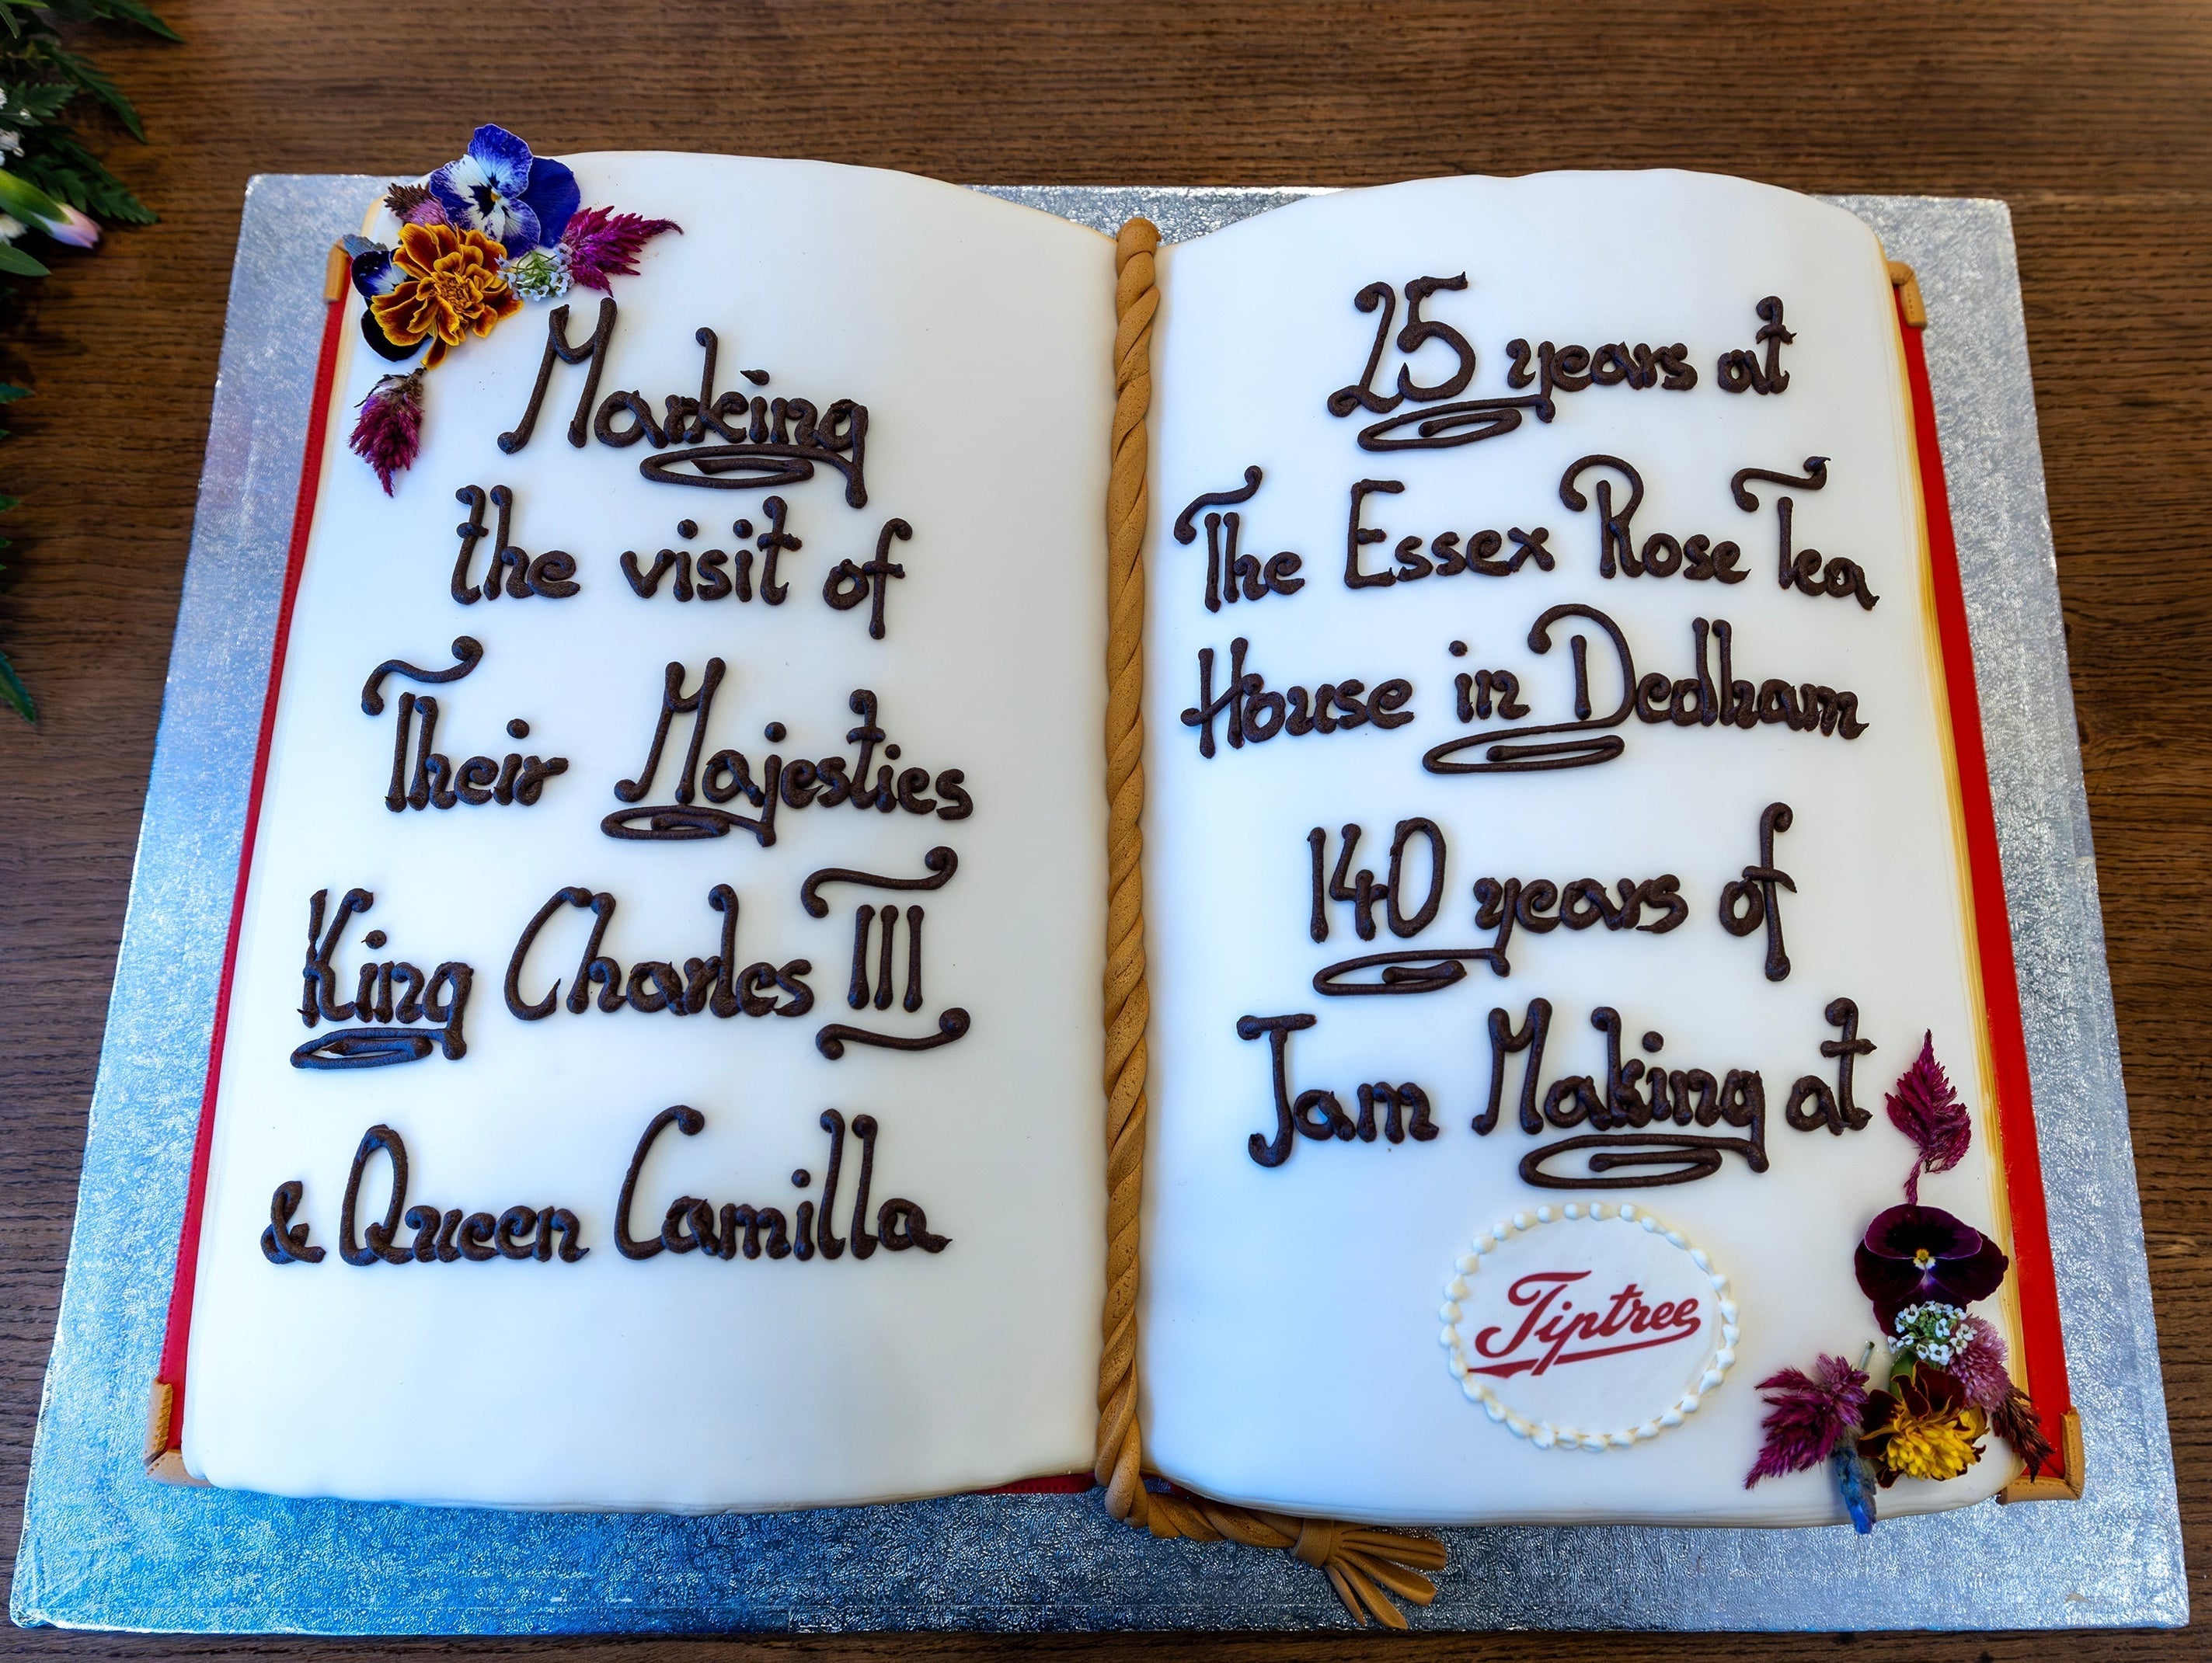 Marking
the visit of
Their Majesties
King Charles III
& Queen Camilla
25 years at
The Essex Rose Tea
House in Dedham
140 years of
Jam Making at
Tiptree